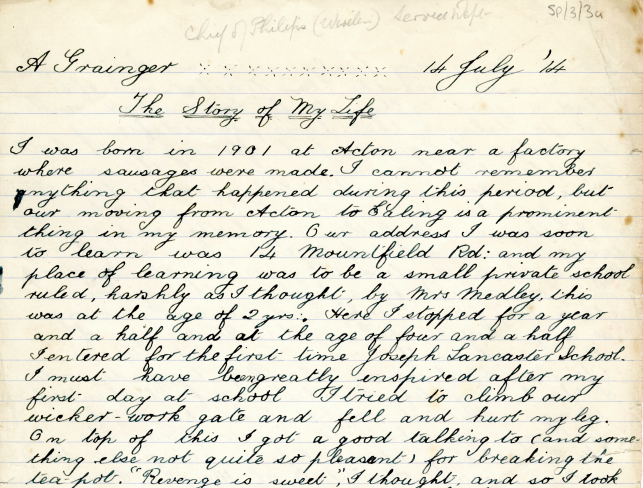 Chief of Philips (Warden) Service Dept
SP/3/3u
A Grainger x x x x x x x x x x x 14 July '14
The Story of My Life
I was born in 1901 at Acton near a factory
where sausages were made. I cannot remember
anything that happened during this period, but
our moving from Acton to Ealing is a prominent
thing in my memory. Our address I was soon
to learn was 14 Mountfield Rd: and my
place of learning was to be a small private school
ruled, harshly as I thought, by Mrs Medley, this
was at the age of 2 yrs:. Here I stopped for a year
and a half and at the age of four and a half
I entered for the first time Joseph Lancaster School.
I must have been greatly inspired after my
first day at school I tried to climb our
wicker-work gate and fell and hurt my leg.
On top of this I got a good talking to (and some-
thing else not quite so pleasant) for breaking the
tea-pot. "Revenge is sweet", I thought, and so I took